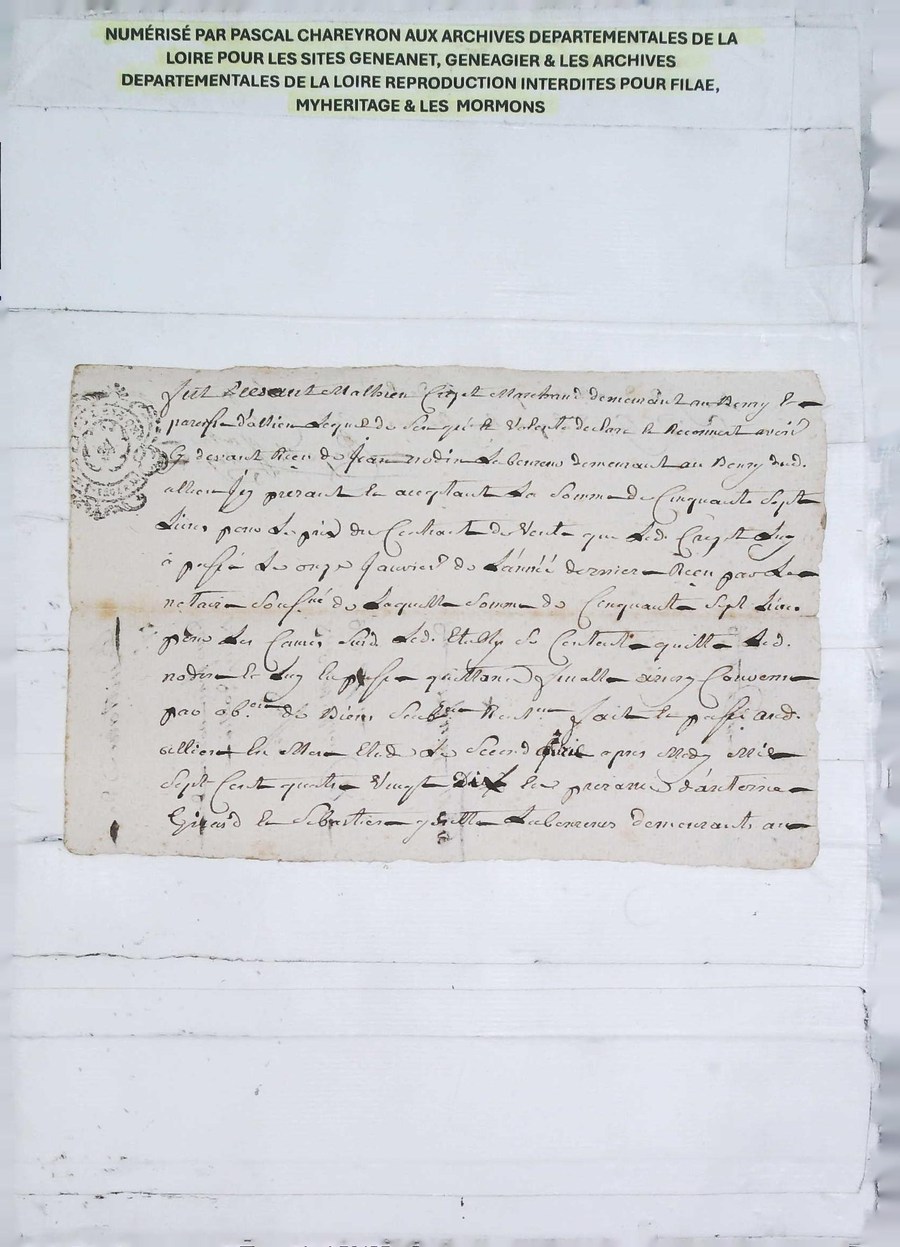 NUMÉRISÉ PAR PASCAL CHAREYRON AUX ARCHIVES DEPARTEMENTALES DE LA
LOIRE POUR LES SITES GENEANET, GENEAGIER & LES ARCHIVES
DEPARTEMENTALES DE LA LOIRE REPRODUCTION INTERDITES POUR FILAE,
MYHERITAGE & LES MORMONS
fut Présant Mathieu Marchand demeurant au et
paroisse d'allieu Lequel de son gré et volonté declare et Reconnoit avoir
Cy devant Reçu de Jean nodin Laboureur demeurant au dud.
allieu Icy presant et acceptant La Somme de Cinquante Sept
Livres pour Le prix du Contract de Vente que Led. Luy
à passé Le onze Janvier de L'année derniere Reçu par Le
notaire Sousné de Laquelle Somme de Cinquante Sept Livres
pour Les Causes Susd Led. se Contente quitte Led.
nodin et Luy en passe quittance finalle ainsy Convenu
par ob.on de Biens Rent.on fait et passé aud.
allieu Le Second avril apres Midy Mil
Sept Cent quatre Vingt dix En presance d'antoine
Girard et Sébastien Laboureurs demeurants au